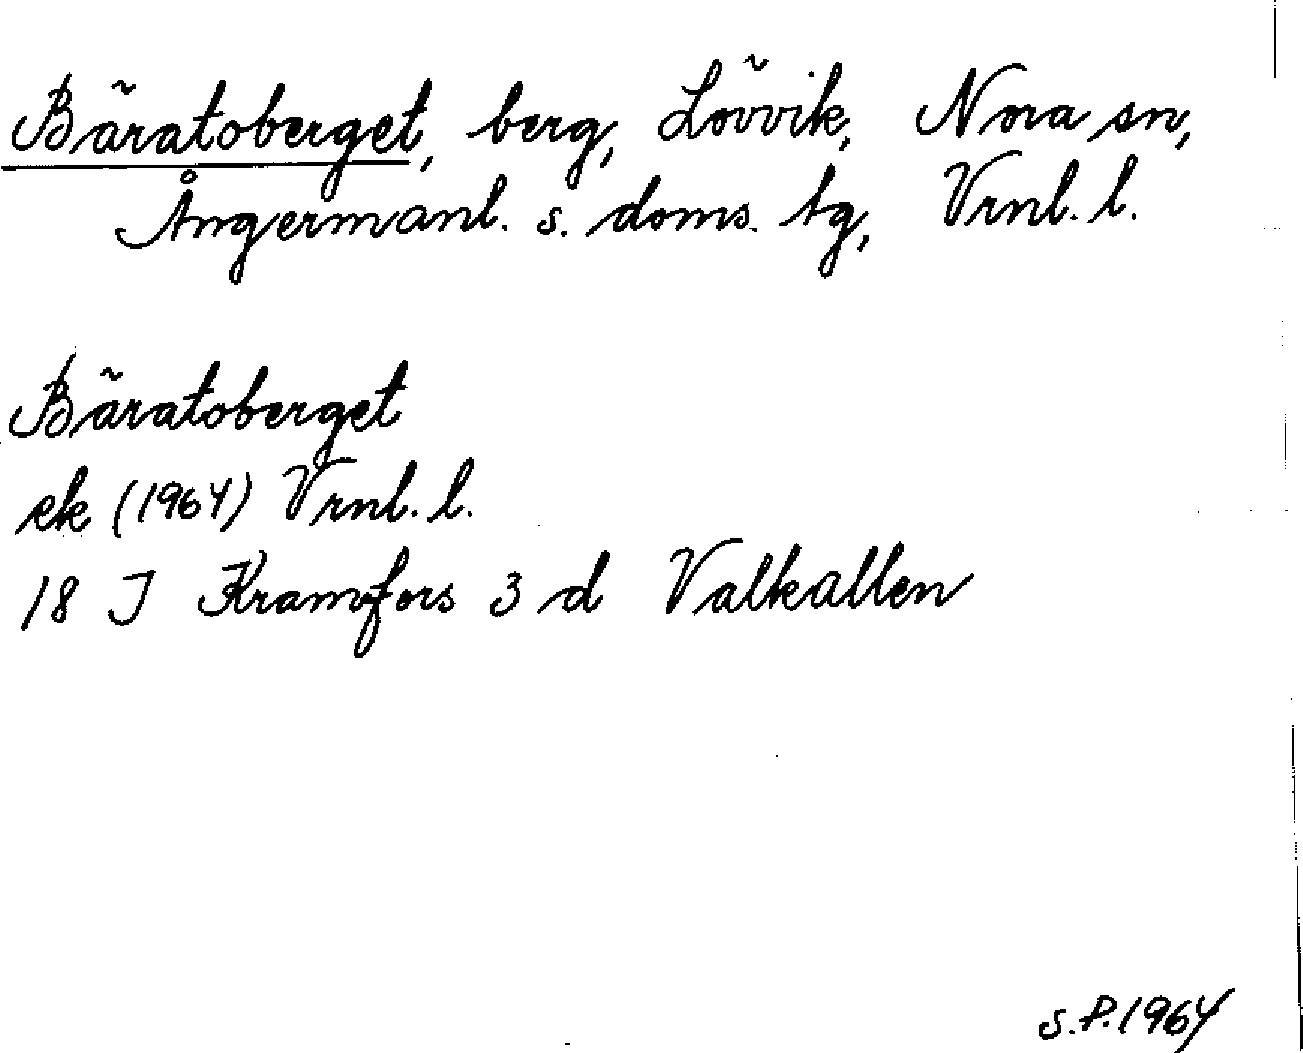 Bäratoberget, berg, Lövvik, Nora sn,
Ångermanl. s. doms. tg, Vrnl. l.
Bäratoberget
ek (1964) Vrnl. l.
18 J Kramfors 3 d Valkallen
S.P. 1964